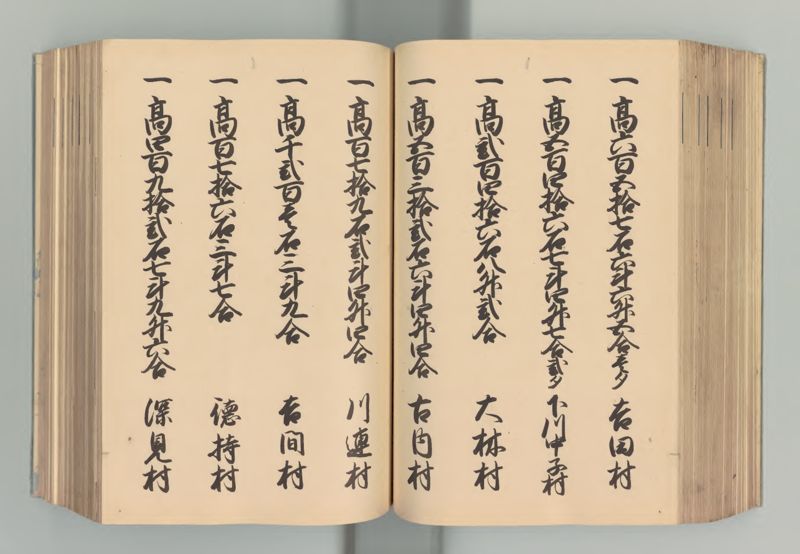 一高六百五拾七石六斗六升五合壱夕 吉田村
一高五百四拾六石七斗四升七合弐夕 下川中子村
一高弐百四拾六石八升弐合 大林村
一高五百三拾弐石六斗四升四合 古内村
一高百七拾九石弐斗四升四合 川連村
一高千弐百壱石三斗九合 吉間村
一高百七拾六石三斗七合 徳持村
一高四百九拾弐石七斗九升六合 深見村